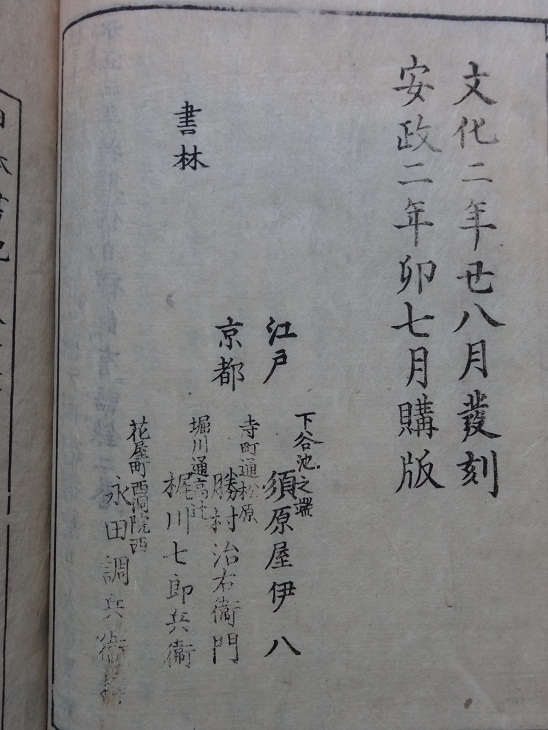 文化二年丑八月發刻
安政二年卯七月購版
書林
江戸
下谷池之端
須原屋伊八
京都
寺町通松原
勝村治右衞門
堀川通高辻
梶川七郎兵衞
花屋町西洞院西
永田調兵衞